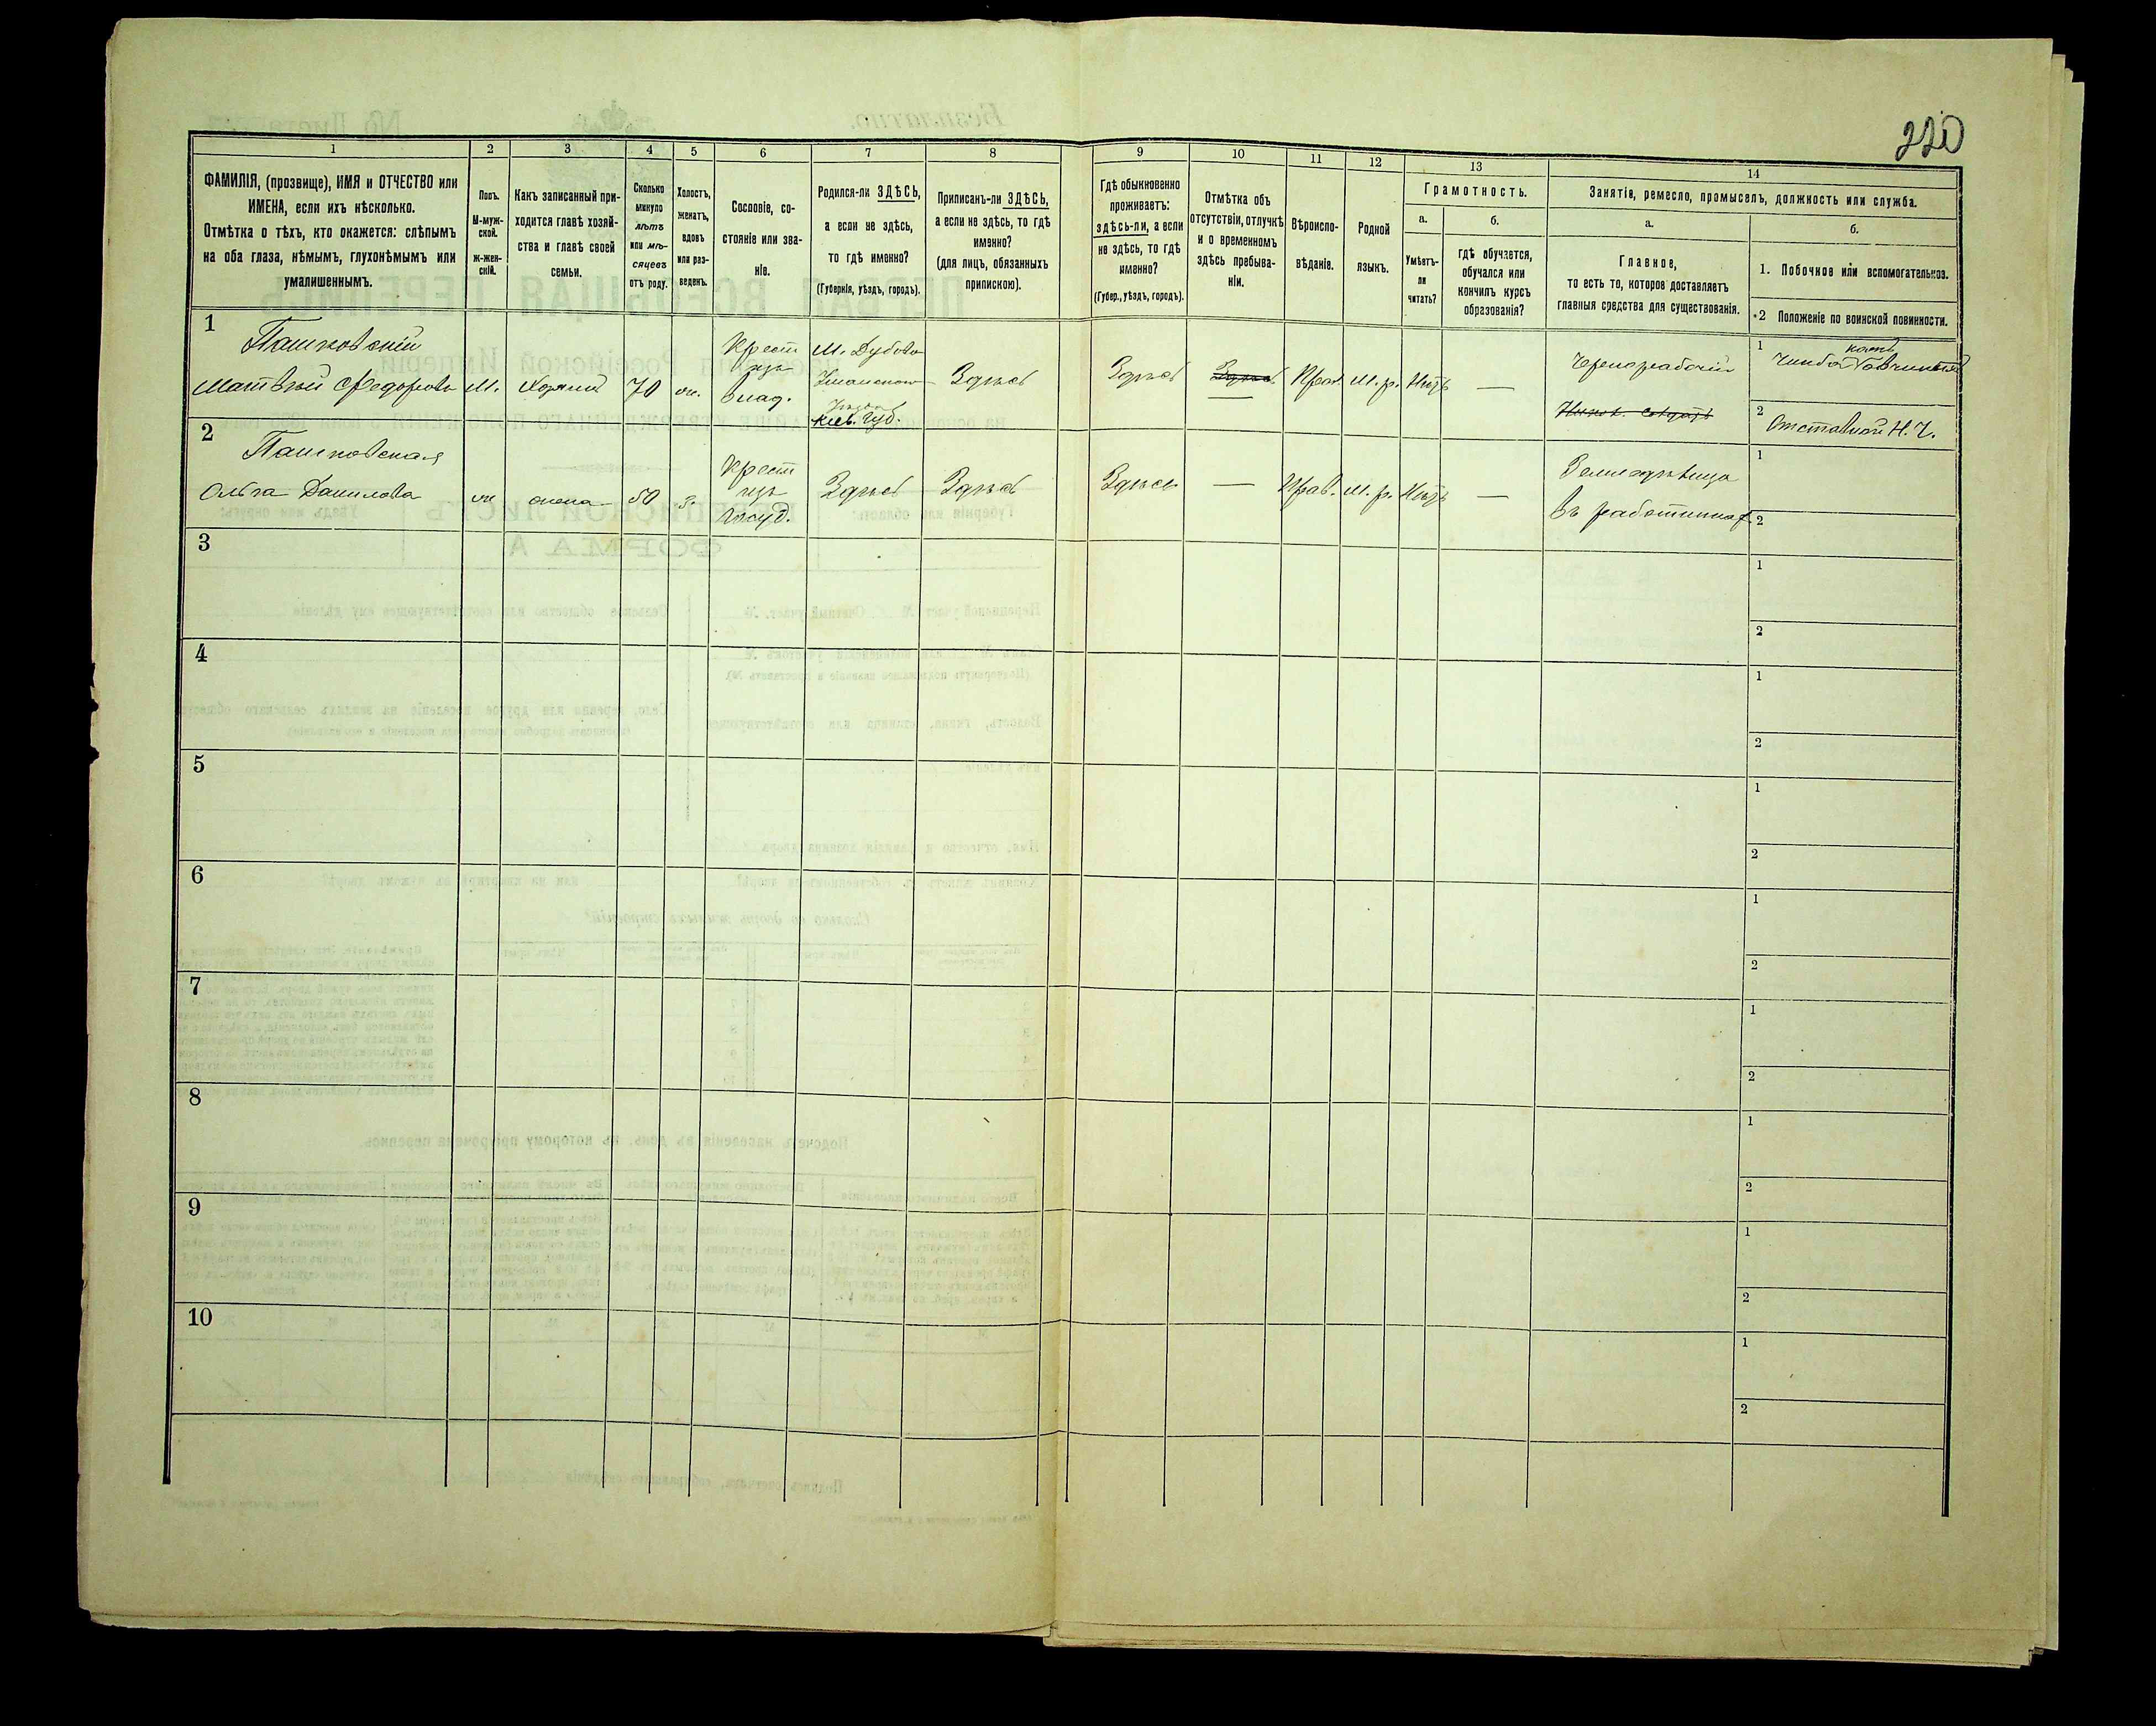 220
1
2
3
4
5
6
7
8
9
10
11
12
13
14
ФАМИЛІЯ, (прозвище), ИМЯ и ОТЧЕСТВО или
ИМЕНА, если ихъ нѣсколько.
Отмѣтка о тѣхъ, кто окажется: слѣпымъ
на оба глаза, нѣмымъ, глухонѣмымъ или
умалишеннымъ.
Полъ.
М-муж-
ской.
ж-жен-
скій.
Какъ записанный при-
ходится главѣ хозяй-
ства и главѣ своей
семьи.
Сколько
минуло
лѣтъ
или мѣ-
сяцевъ
отъ роду.
Холостъ,
женатъ,
вдовъ
или раз-
веденъ.
Сословіе, со-
стояніе или зва-
ніе.
Родился-ли ЗДѢСЬ,
а если не здѣсь,
то гдѣ именно?
(Губернія, уѣздъ, городъ).
Приписанъ-ли ЗДѢСЬ,
а если не здѣсь, то гдѣ
именно?
(для лицъ, обязанныхъ
припискою).
Гдѣ обыкновенно
проживаетъ:
здѣсь-ли, а если
не здѣсь, то гдѣ
именно?
(Губер., уѣздъ, городъ).
Отмѣтка объ
отсутствіи, отлучкѣ
и о временномъ
здѣсь пребыва-
ніи.
Вѣроиспо-
вѣданіе.
Родной
языкъ.
Грамотность.
а.
Умѣетъ-
ли
читать?
б.
гдѣ обучается,
обучался или
кончилъ курсъ
образованія?
Занятія, ремесло, промыселъ, должность или служба.
а.
Главное,
то есть то, которое доставляетъ
главныя средства для существованія.
б.
1. Побочное или вспомогательное.
2 Положеніе по воинской повинности.
1
Пашковскій
Матвѣй Федоровъ
М.
хозяинъ
70
ж.
Крест
изъ
влад.
М. Дубова
Уманскаго
уѣзда
Кіев. Губ.
Здѣсь
Здѣсь
Здѣсь
Прав.
М. р.
Нѣтъ
—
Чернорабочій
Никол. солдатъ
1
2
Отставной Н. Ч.
2
Пашковская
Ольга Данилова
ж
жена
50
з.
Крест
изъ
госуд.
Здѣсь
Здѣсь
Здѣсь
—
Прав.
М. р.
Нѣтъ
—
Земледѣлица
въ работникахъ
1
2
3
1
2
4
1
2
5
1
2
6
1
2
7
1
2
8
1
2
9
1
2
10
1
2